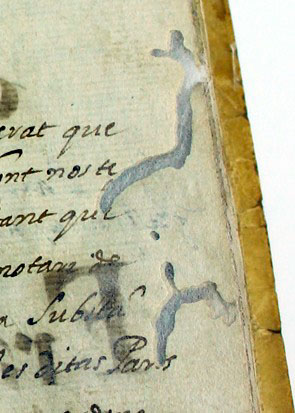 erat que
ont noste
tant que
notari de
a Substa
les ditas Parts